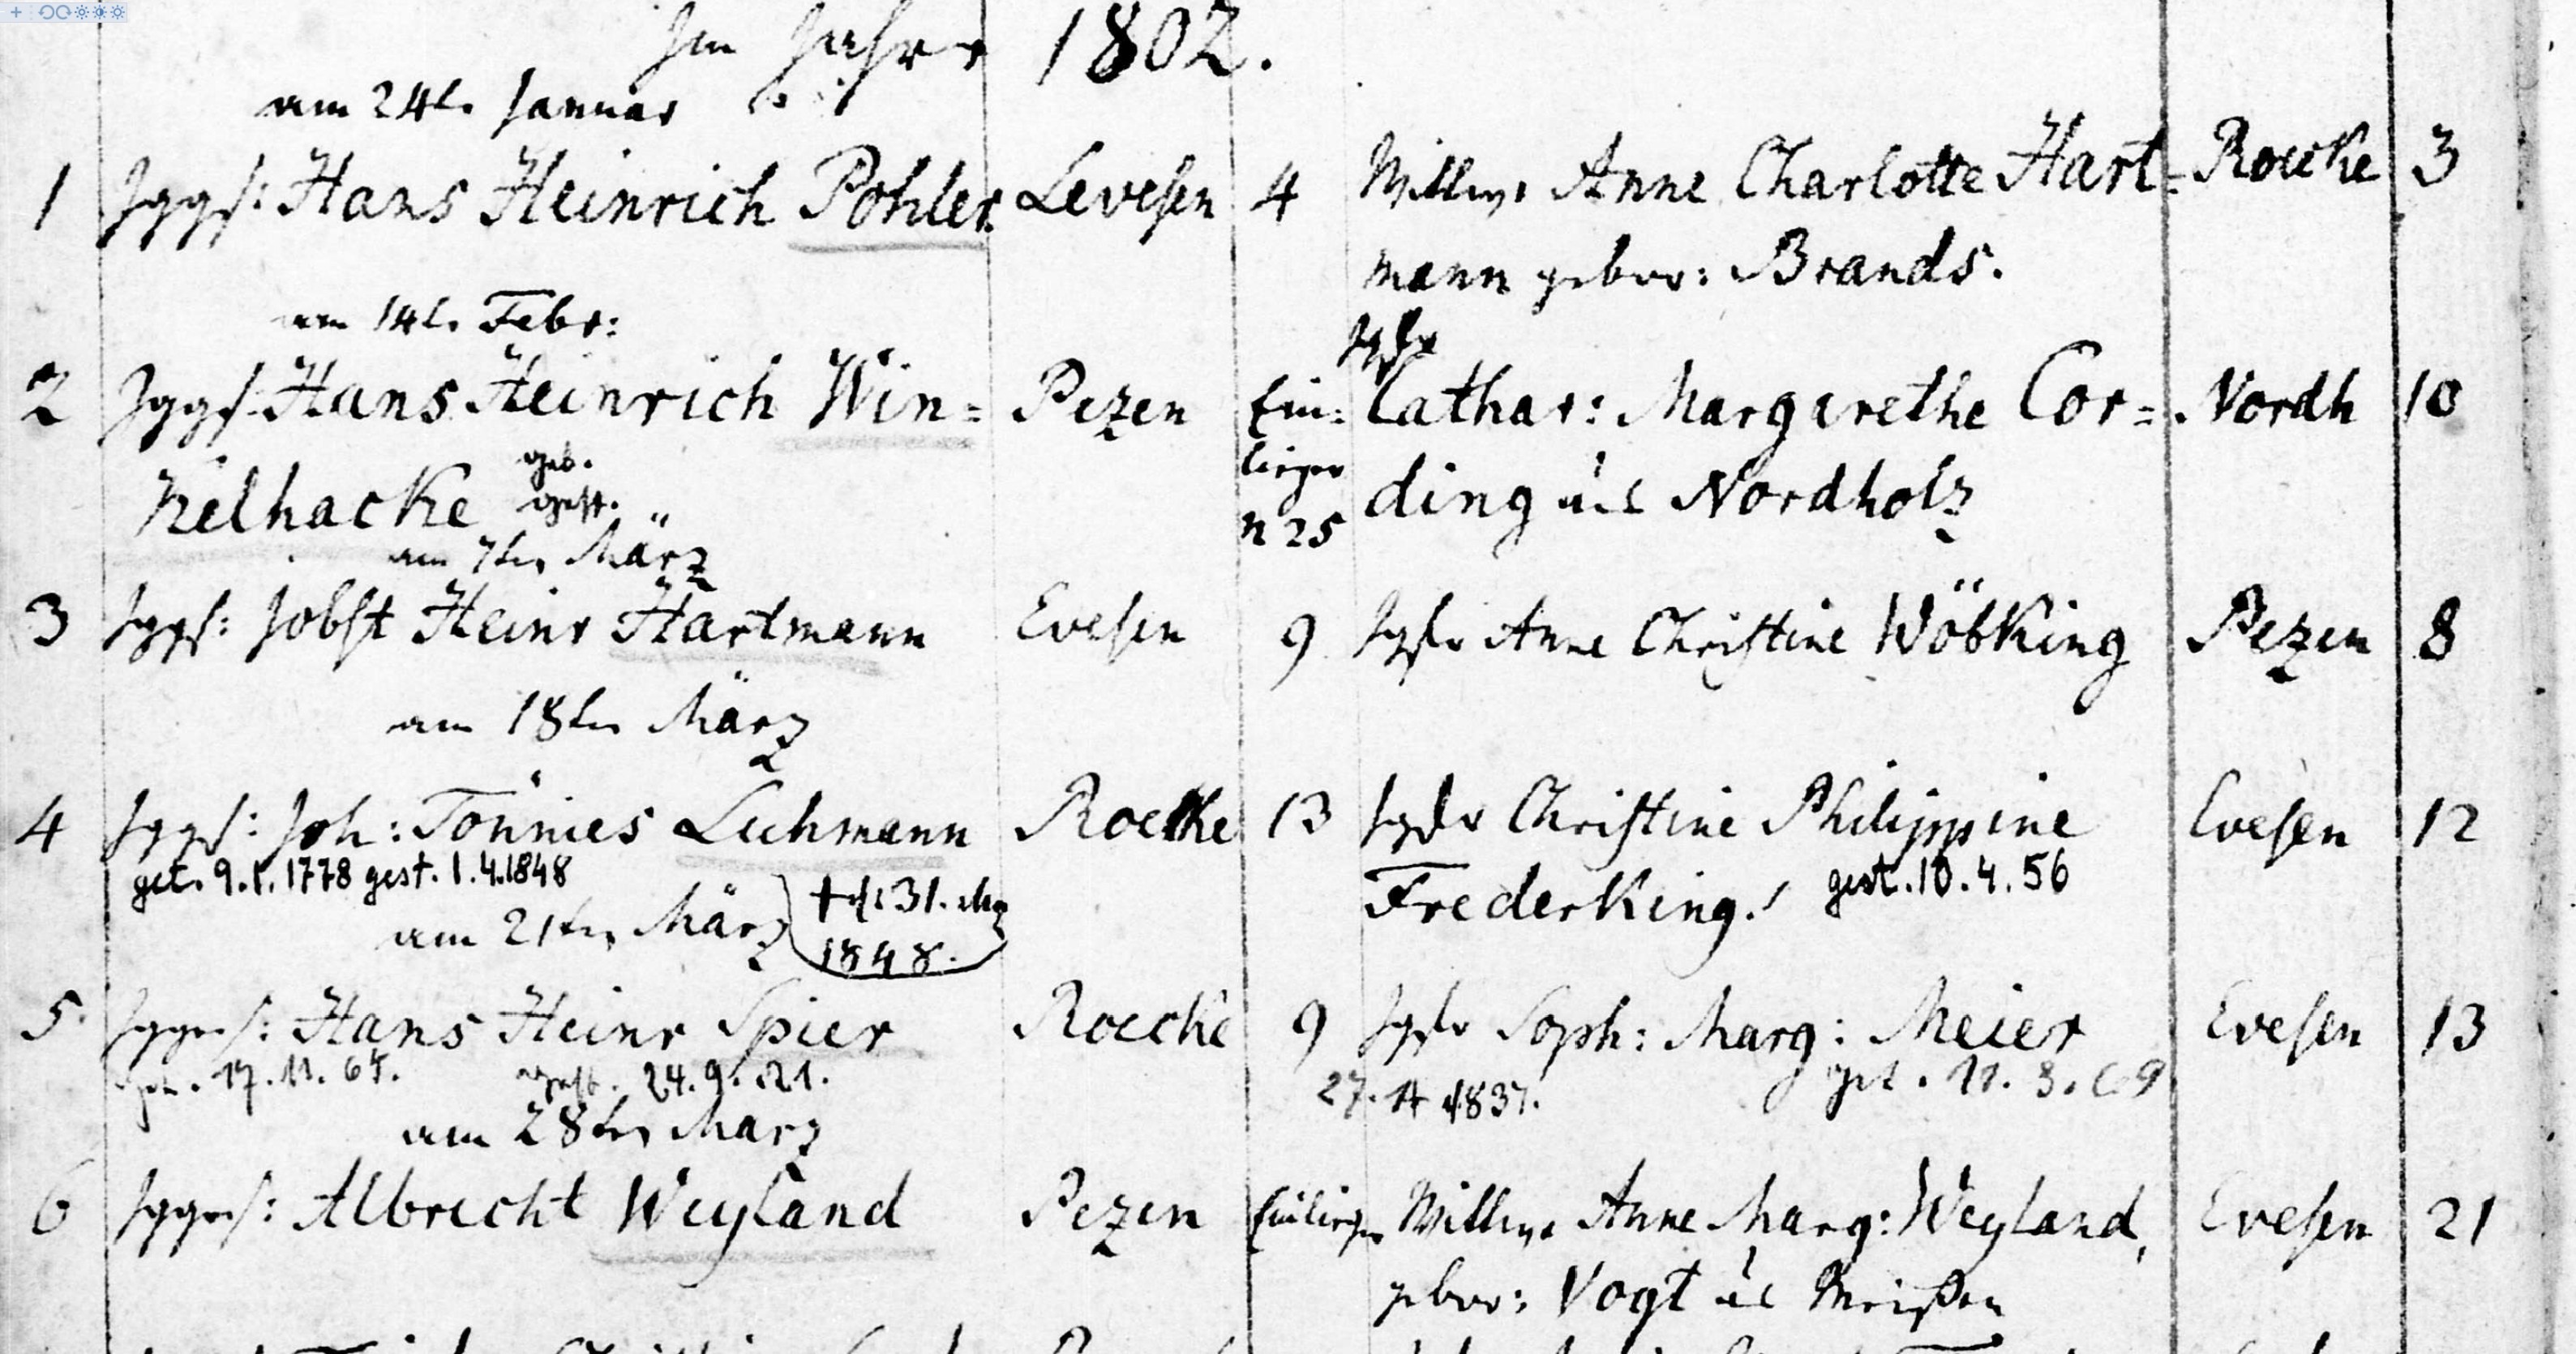 Im Jahre 1802.
am 24t. Januar
1 Jggs: Hans Heinrich Pohler Levesen 4 Wittwe Anne Charlotte Hart= Roecke 3
mann gebor: Brands.
am 14t. Febr:
Jgfr
2 Jggs: Hans Heinrich Win= Pezen Ein= Cathar: Margarethe Cor= Nordh 10
lieger
kelhacke geb. gest. " n 25 ding aus Nordholz
am 7ten März
3 Jggs: Jobst Heinr Hartmann Evesen 9 Jgfr Anne Christine Wöbking Pezen 8
am 18ten März
4 Jggs: Joh: Tönnies Luhmann Roecke 13 Jgfr Christine Philippine Evesen 12
get. 9.1.1778 gest. 1.4.1848 Frederking. gest. 10.4.56
am 21ten März † d: 31. Mz
1848.
5. Jgges: Hans Heinr Spier Roecke 9 Jgfr Soph: Marg: Meier Evesen 13
17.11.65. gest. 24.9.21. 27. 1837. get. 11.3.69
am 28ten März
6 Jgges: Albrecht Weyland Pezen Einlieger Wittwe Anne Marg: Weyland, Evesen 21
gebor: Vogt aus Meißen